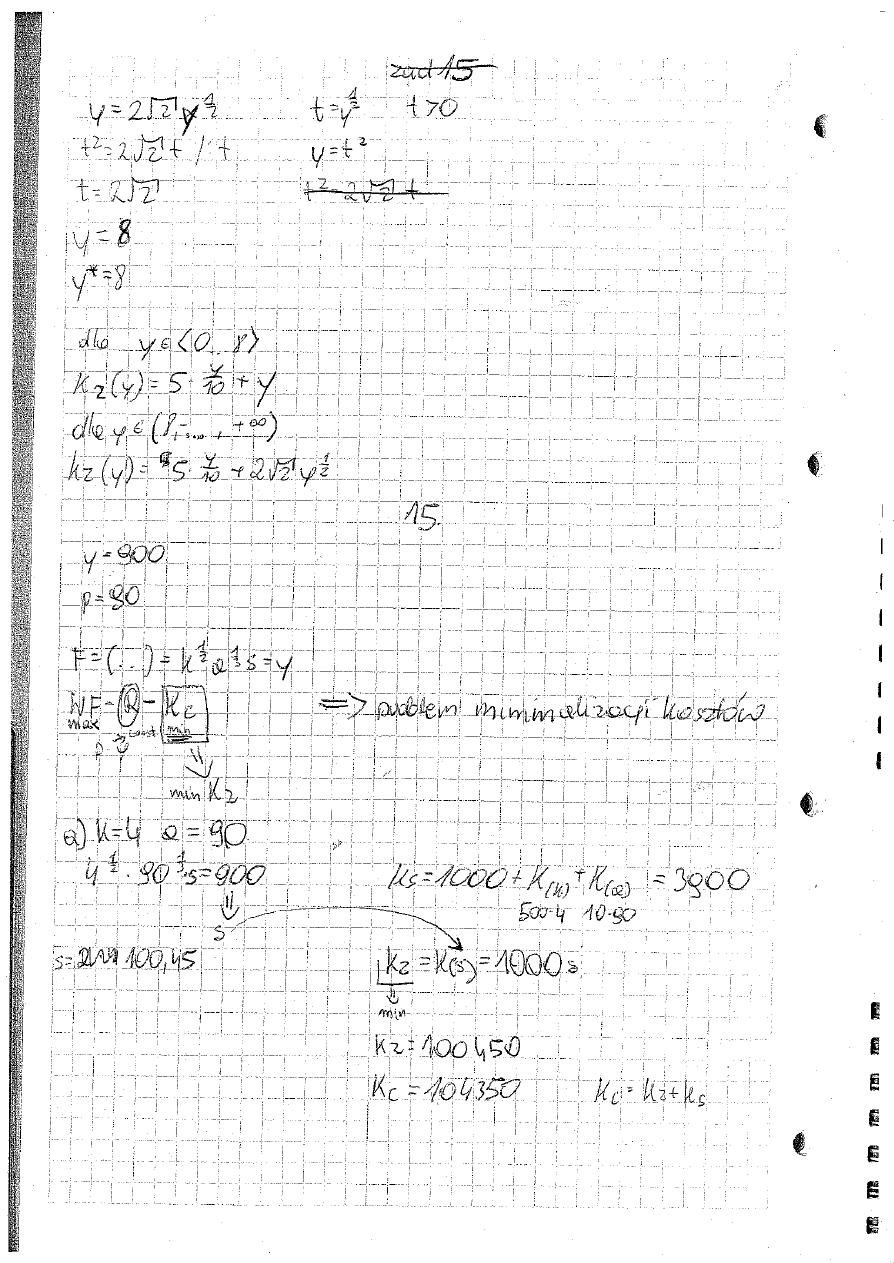 zad 15
y = 2√2 y^1/2    t = y^1/2    t > 0
t² = 2√2 t / : t    y = t²
t = 2√2    t² = 2√2 t
y = 8
y* = 8
dla y ∈ <0...8>
Kz(y) = 5 · y/10 + y
dla y ∈ (8, ..., +∞)
Kz(y) = 5 · y/10 + 2√2 y^1/2
15
y = 900
p = 90
F = (..) = k^1/2 a^1/3 s = y
max const. min ⇒ problem minimalizacji kosztów
min Kz
a) k = 4 a = 90
4^1/2 · 90^1/3 · s = 900    Ks = 1000 + K(k) + K(a) = 3900
500·4 10·90
s
s = 100,45    Kz = K(s) = 1000 s
min
Kz = 100450
Kc = 104350    Kc = Kz + Ks